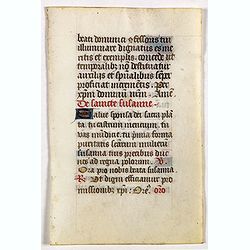 beati dominici confessoris tui
illuminare dignatus es me
ritis et exemplis. concede ut
temporalibus non destituatur
auxiliis et spiritualibus semper
proficiat incrementis. Per
xpm dominum nrm. Amen.
De sancte susanne.
Salve sponsa dei sacra plan
ta. tu castrum mentium. tu
vas mundicie. tu prima forma
puritatis scutum mulierum
susanna tuis precibus duc
nos ad regna polorum.
Ora pro nobis beata susanna
Ut digni efficiamur pro
missionibus xpi. Ore. oro